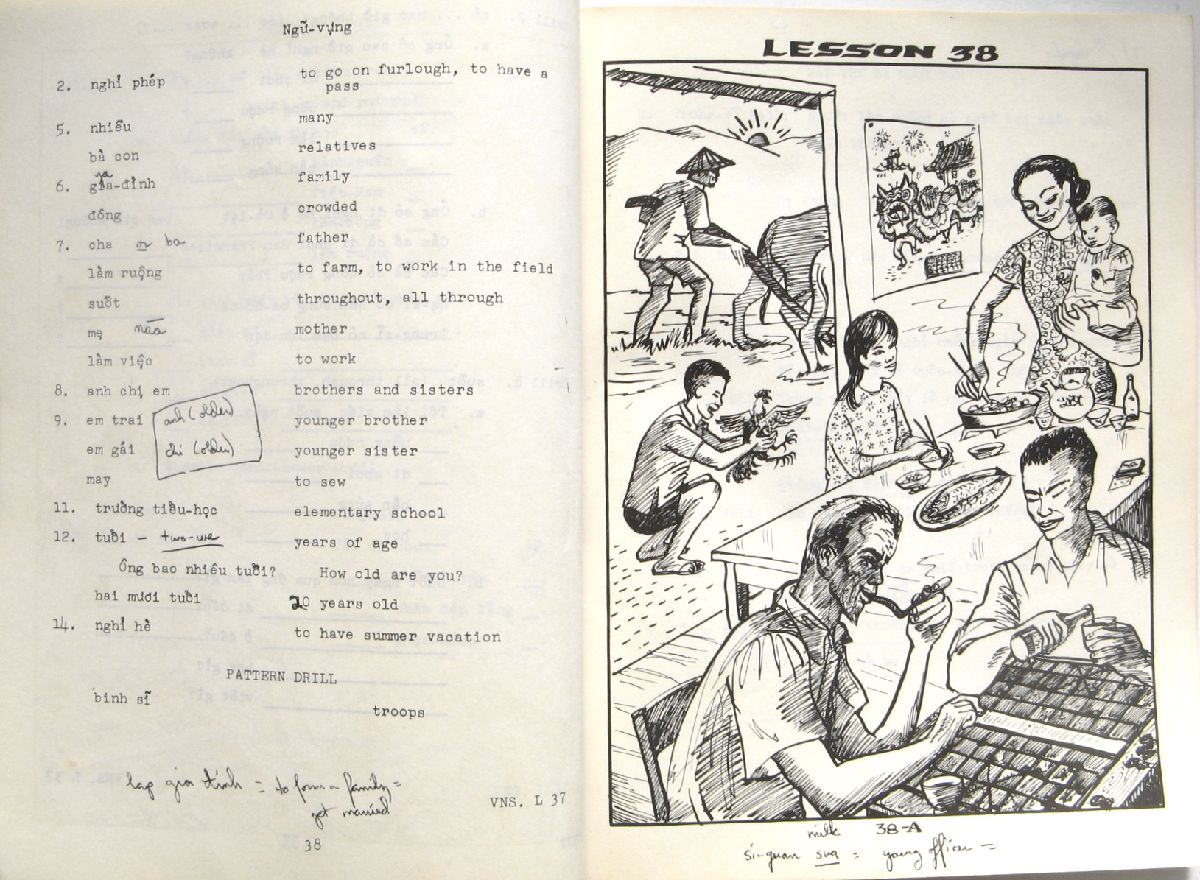 Ngữ-vựng
2. nghỉ phép to go on furlough, to have a
pass
5. nhiều many
bà con relatives
6. gia-đình family
đông crowded
7. cha or ba father
làm ruộng to farm, to work in the field
suốt throughout, all through
mẹ mother
làm việc to work
8. anh chị em brothers and sisters
9. em trai anh (older) younger brother
em gái chị (older) younger sister
may to sew
11. trường tiểu-học elementary school
12. tuổi – years of age
Ông bao nhiêu tuổi? How old are you?
hai mươi tuổi 20 years old
14. nghỉ hè to have summer vacation
PATTERN DRILL
binh sĩ troops
lap gia đinh = to form a family =
get married
VNS. L 37
38
LESSON 38
38-A
milk
sĩ-quan sua = young officer =